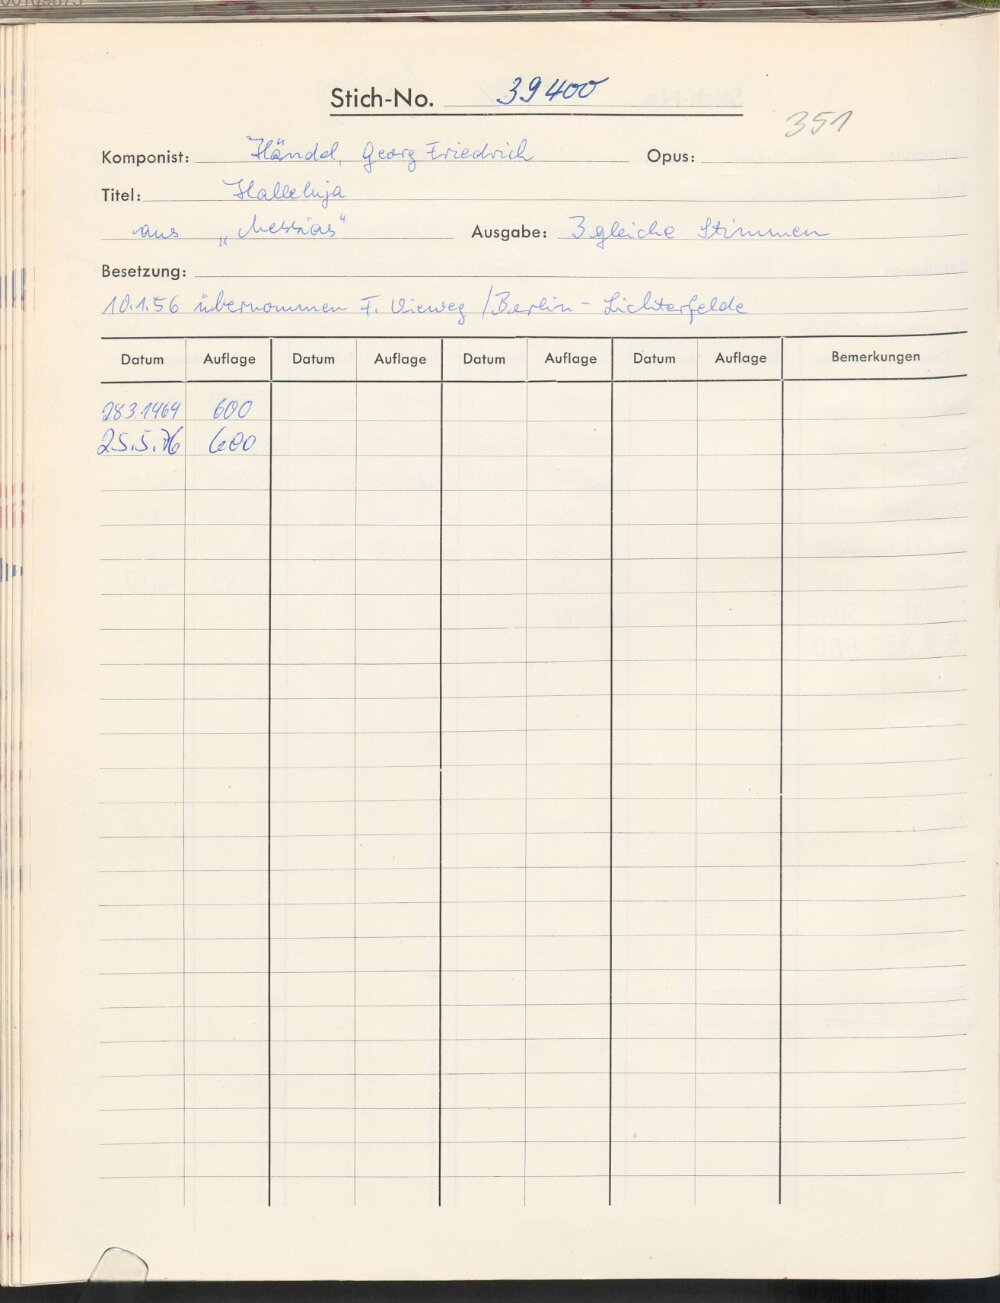 Stich-No. 39400
351
Komponist: Händel, Georg Friedrich Opus:
Titel: Halleluja
aus „Messias“ Ausgabe: 3 gleiche Stimmen
Besetzung:
10.1.56 übernommen F. Vieweg / Berlin - Lichterfelde
Datum Auflage Datum Auflage Datum Auflage Datum Auflage Bemerkungen
28.3.1969 600
25.5.76 600